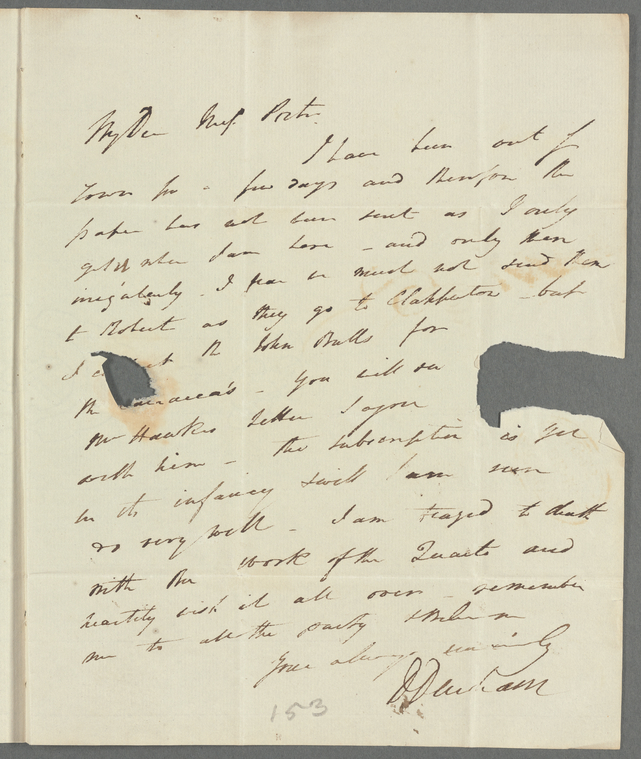 My Dear Miss Porter
I have been out of
Town for a few days and therefore the
paper has not been sent as I only
get it when I am here – and only then
irregularly. I fear we must not send them
to Robert as they go to Clapperton – but
I the John Bulls for
the – You will see
Mr Hawkes letter I agree
with him – the subscription is yet
in its infancy & will I am sure
do very well – I am teazed to death
with the work of the Quarto and
heartily wish it all over – remember
me to all the party & believe me
Your always sincerely
D Denham
153